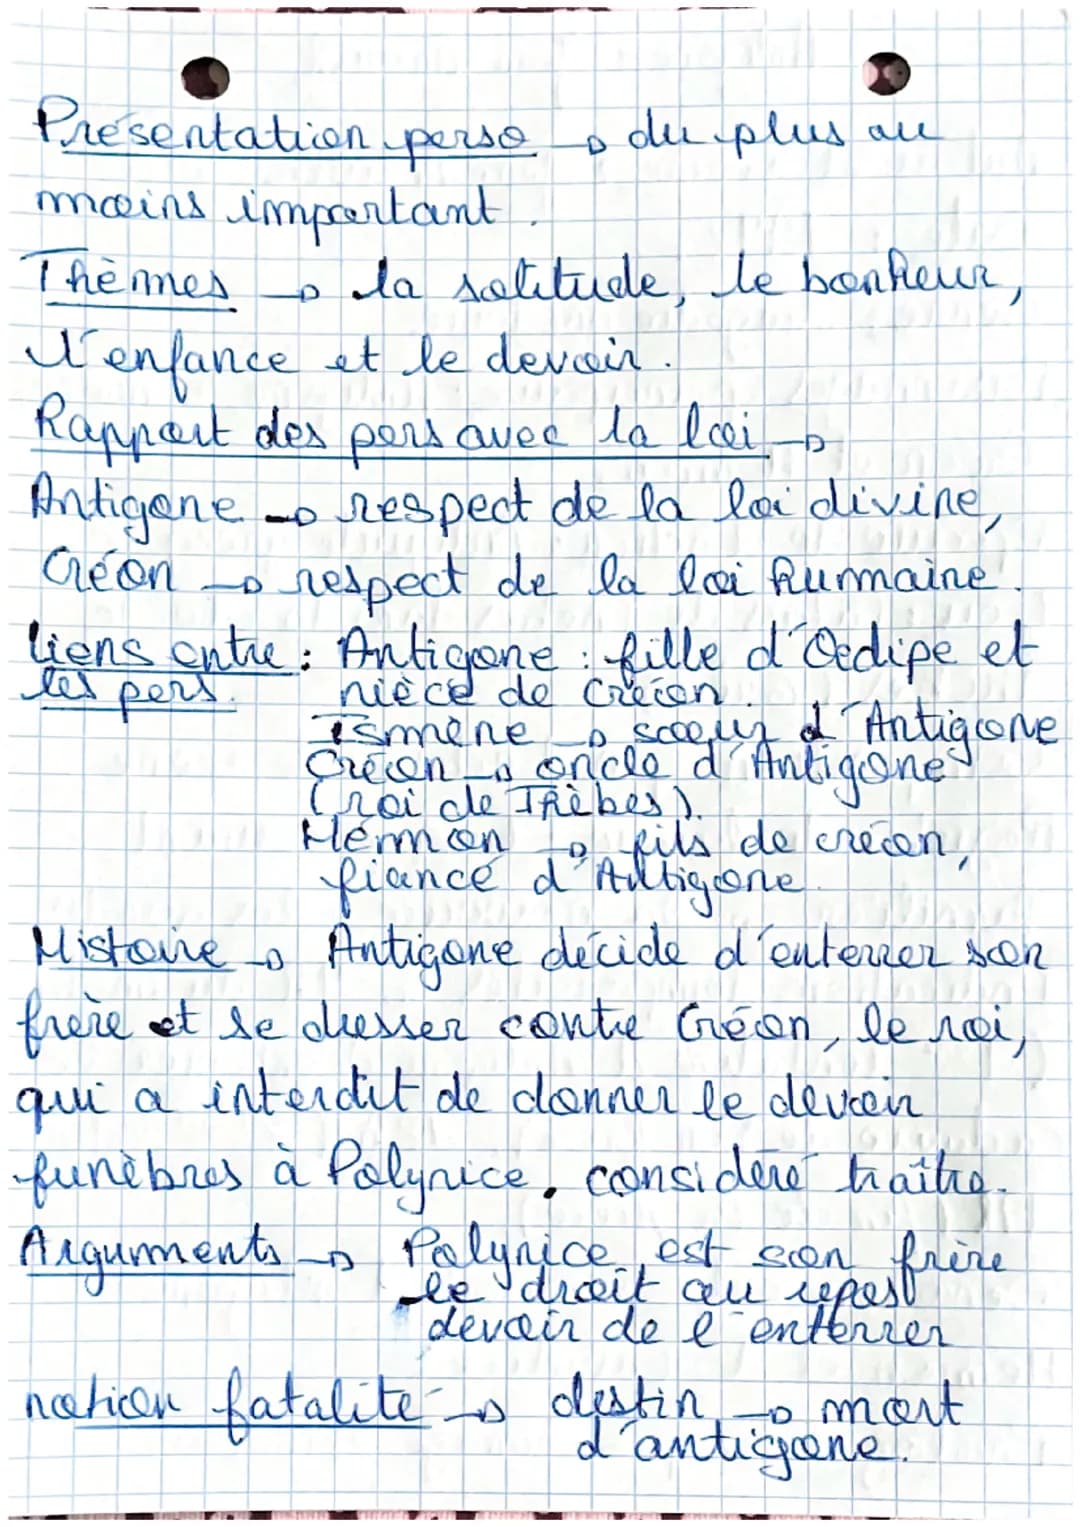 Présentation perso → du plus au
moins important.
Thèmes → la solitude, le bonheur,
l'enfance et le devoir.
Rapport des pers avec la loi →
Antigone → respect de la loi divine,
Créon → respect de la loi humaine.
liens entre : Antigone : fille d'Oedipe et
les pers. nièce de Créon.
Ismène → soeur d'Antigone
Créon → oncle d'Antigone
(roi de Thèbes).
Hémon → fils de créon,
fiancé d'Antigone.
Histoire → Antigone décide d'enterrer son
frère et se dresser contre Créon, le roi,
qui a interdit de donner le devoir
funèbres à Polynice, considéré traître.
Arguments → Polynice est son frère
le droit au repos
devoir de l'enterrer
notion fatalité → destin → mort
d'antigone.